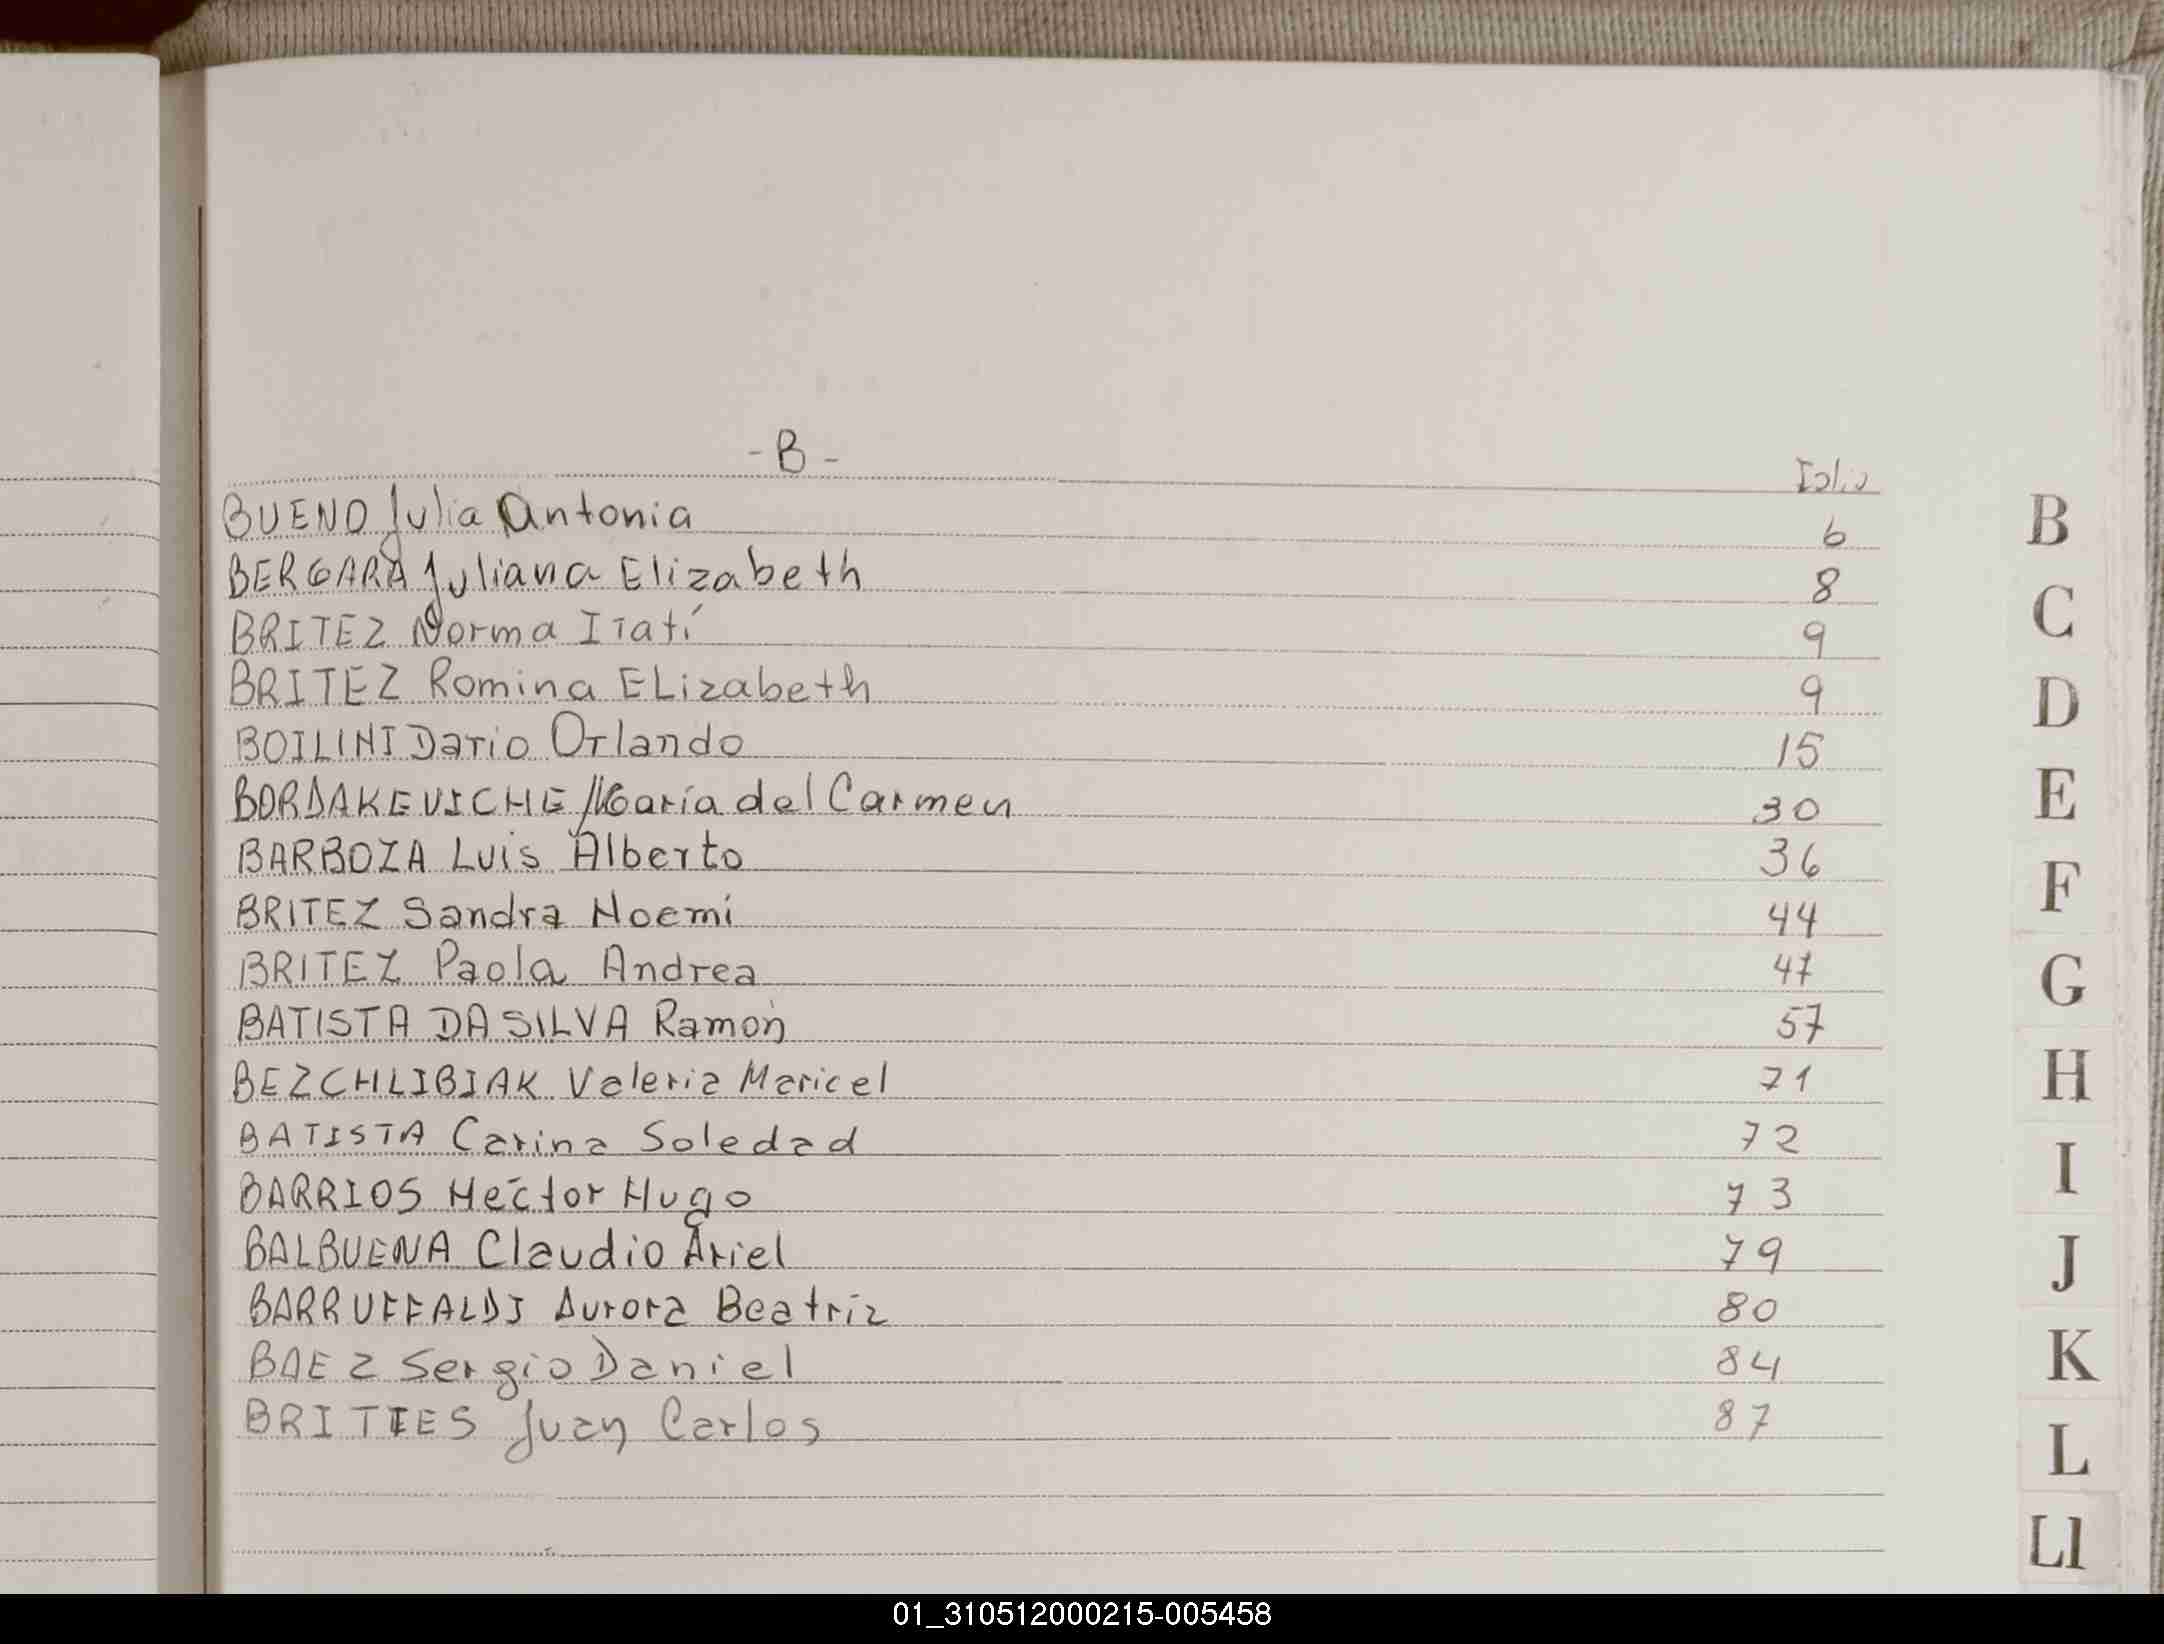 - B -
Folio
BUENO Julia Antonia 6
BERGARA Juliana Elizabeth 8
BRITEZ Norma Itatí 9
BRITEZ Romina ELizabeth 9
BOILINI Dario Orlando 15
BORDAKEVICHE María del Carmen 30
BARBOZA Luis Alberto 36
BRITEZ Sandra Noemi 44
BRITEZ Paola Andrea 47
BATISTA DA SILVA Ramón 57
BEZCHLIBIAK Valeria Maricel 71
BATISTA Carina Soledad 72
BARRIOS Hector Hugo 73
BALBUENA Claudio Ariel 79
BARRUFFALDI Aurora Beatriz 80
BAEZ Sergio Daniel 84
BRITTES Juan Carlos 87
B
C
D
E
F
G
H
I
J
K
L
Ll
01_310512000215-005458